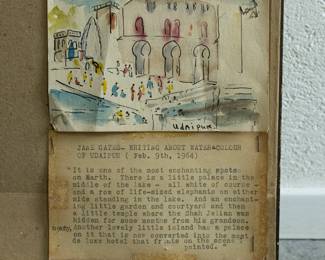 Udaipur.
JANE GATES— WRITING ABOUT WATER-COLOUR
OF UDAIPUR ( Feb. 9th, 1964)
"It is one of the most enchanting spots
on Earth. There is a little palace in the
middle of the lake - all white of course -
and a row of life-sized elephants on either
side standing in the lake. And an enchant-
ing little garden and courtyard and then
a little temple where the Shah Jehan was
hidden for some months from his grandson.
Another lovely little island has a palace
on it that is now converted into the most
de luxe hotel that fronts on the scene I
painted. "